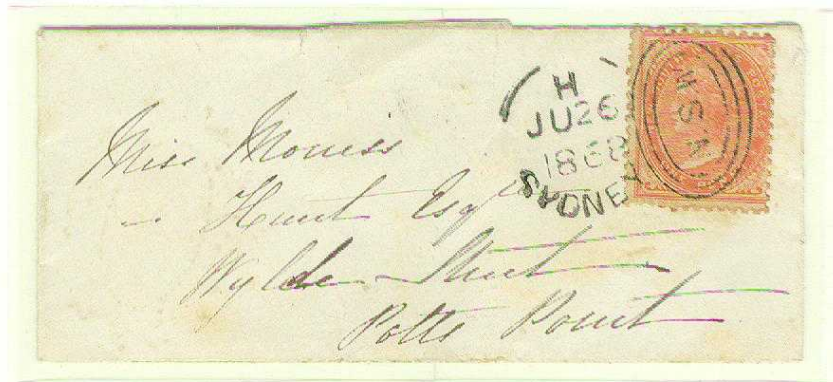 H
JU 26
1868
SYDNEY
N.S.W
Miss Morriss
- Hunt Esqre
Wylde Street
Potts Point